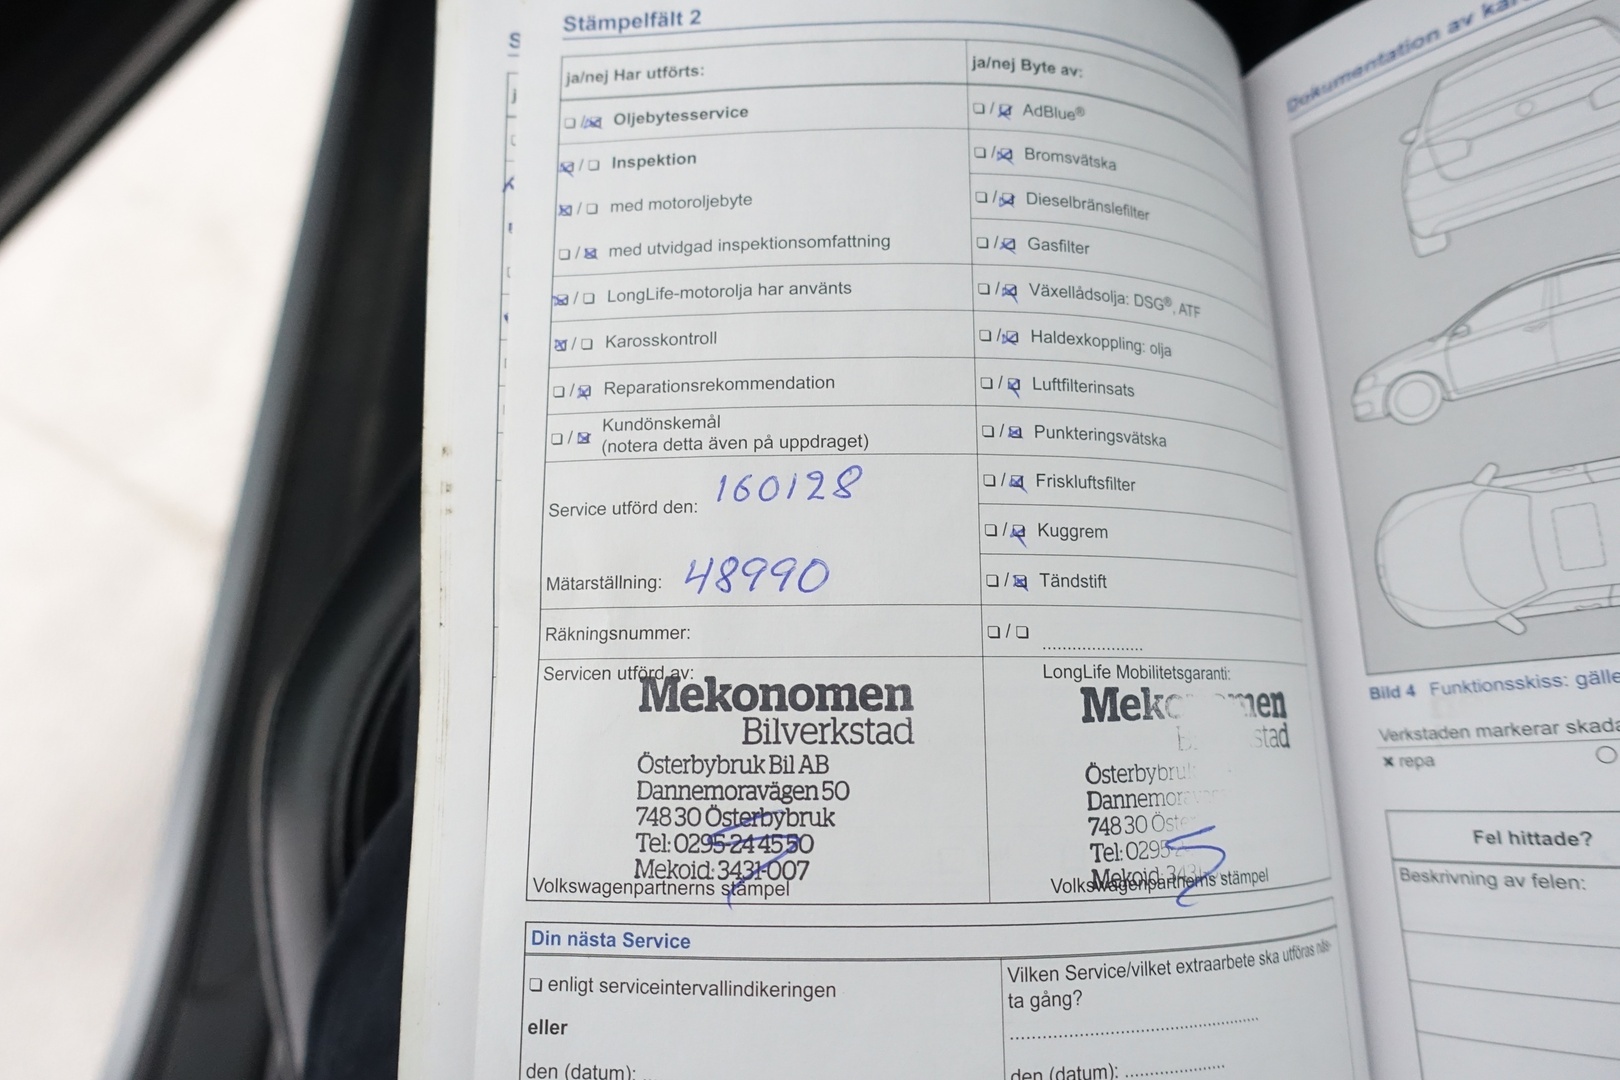 Stämpelfält 2
ja/nej Har utförts:
Oljebytesservice
Inspektion
med motoroljebyte
med utvidgad inspektionsomfattning
LongLife-motorolja har använts
Karosskontroll
Reparationsrekommendation
Kundönskemål
(notera detta även på uppdraget)
Service utförd den: 160128
Mätarställning: 48990
Räkningsnummer:
Servicen utförd av:
Mekonomen
Bilverkstad
Österbybruk Bil AB
Dannemoravägen 50
748 30 Österbybruk
Tel: 0295-244550
Mekoid: 3431-007
Volkswagenpartnerns stämpel
ja/nej Byte av:
AdBlue®
Bromsvätska
Dieselbränslefilter
Gasfilter
Växellådsolja: DSG®, ATF
Haldexkoppling: olja
Luftfilterinsats
Punkteringsvätska
Friskluftsfilter
Kuggrem
Tändstift
LongLife Mobilitetsgaranti:
Volkswagenpartnerns stämpel
Din nästa Service
enligt serviceintervallindikeringen
eller
den (datum):
Vilken Service/vilket extraarbete ska utföras näs-
ta gång?
den (datum):
Dokumentation av
Bild 4 Funktionsskiss:
Verkstaden markerar
x repa
Fel hittade?
Beskrivning av felen: